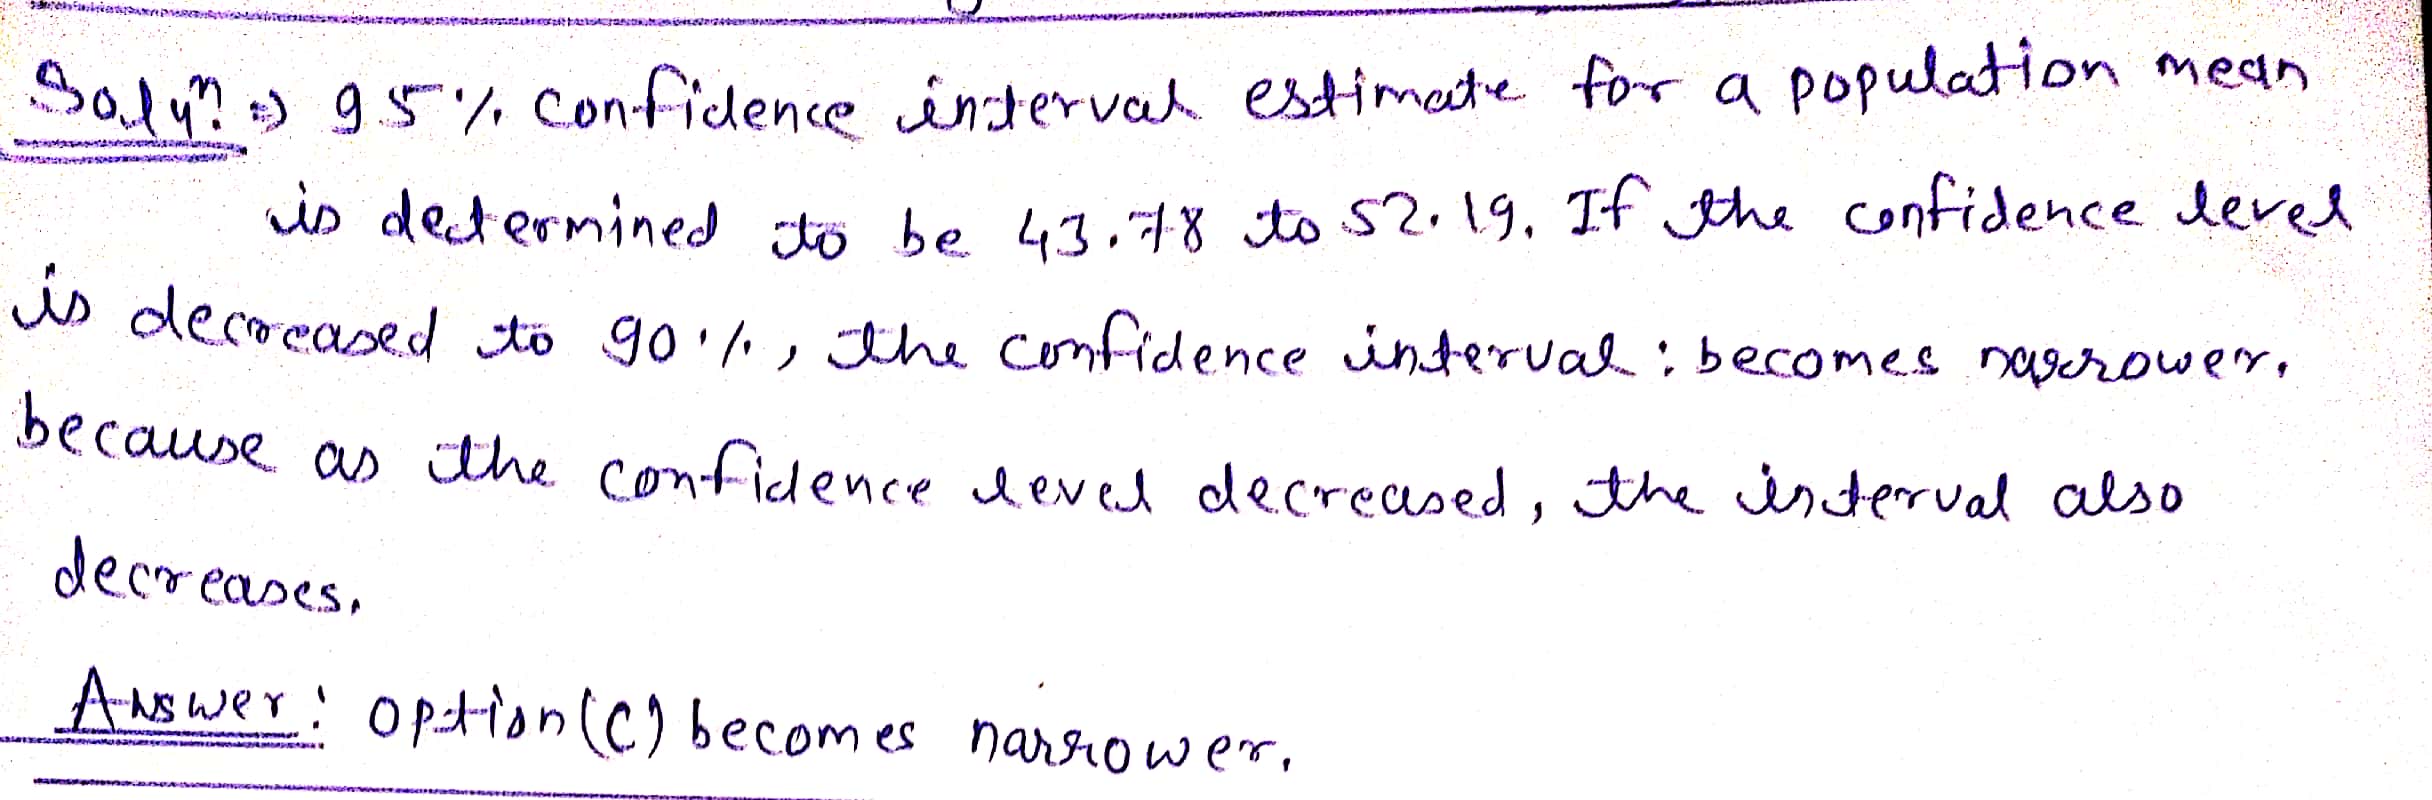 Solyn: ⇒ 95% confidence interval estimate for a population mean
is determined to be 43.78 to 52.19. If the confidence level
is decreased to 90%, the confidence interval : becomes narrower.
because as the confidence level decreased, the interval also
decreases.
Answer: option (C) becomes narrower.